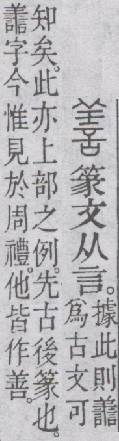 善篆文从言。
據此則譱
爲古文可
知矣。此亦上部之例。先古後篆也。
譱字今惟見於周禮。他皆作善。